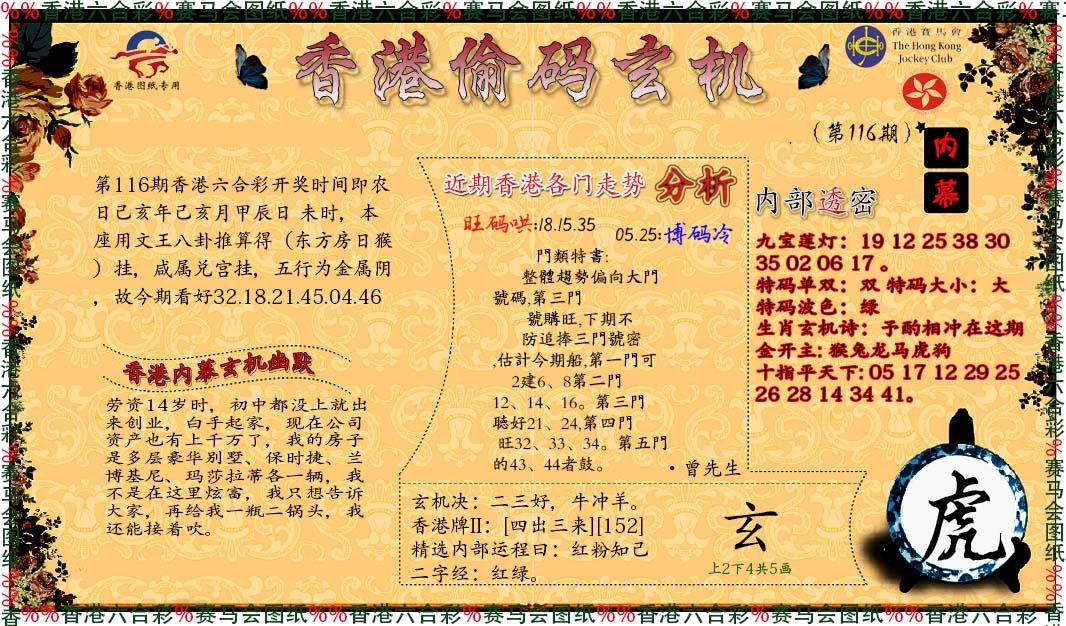 %%香港六合彩%赛马会图纸%%香港六合彩%赛马会图纸%%香港六合彩%赛马会图纸%%香港六合彩%赛马会图纸%%香港六合彩%赛
香港图纸专用
香港偷码玄机
香港賽馬會
The Hong Kong
Jockey Club
(第116期)
内
幕
第116期香港六合彩开奖时间即农
日己亥年己亥月甲辰日 未时，本
座用文王八卦推算得（东方房日猴
）挂，咸属兑宫挂，五行为金属阴
，故今期看好32.18.21.45.04.46
香港内幕玄机幽默
劳资14岁时，初中都没上就出
来创业，白手起家，现在公司
资产也有上千万了，我的房子
是多层豪华别墅、保时捷、兰
博基尼、玛莎拉蒂各一辆，我
不是在这里炫富，我只想告诉
大家，再给我一瓶二锅头，我
还能接着吹。
近期香港各门走势 分析
旺码哄:18.15.35
05.25:博码冷
門類特書:
整體趨勢偏向大門
號碼,第三門
號購旺,下期不
防追捧三門號密
,估計今期船,第一門可
2建6、8第二門
12、14、16。第三門
聽好21、24,第四門
旺32、33、34。第五門
的43、44者鼓。
·曾先生
玄机决：二三好，牛冲羊。
香港牌II：[四出三来][152]
精选内部运程曰：红粉知己
二字经：红绿。
玄
上2下4共5画
内部透密
九宝莲灯：19 12 25 38 30
35 02 06 17。
特码单双：双 特码大小：大
特码波色：绿
生肖玄机诗：予酌相冲在这期
金开主: 猴兔龙马虎狗
十指平天下: 05 17 12 29 25
26 28 14 34 41。
虎
香%%香港六合彩%赛马会图纸%%香港六合彩%赛马会图纸%%香港六合彩%赛马会图纸%%香港六合彩%赛马会图纸%%香港六合彩%